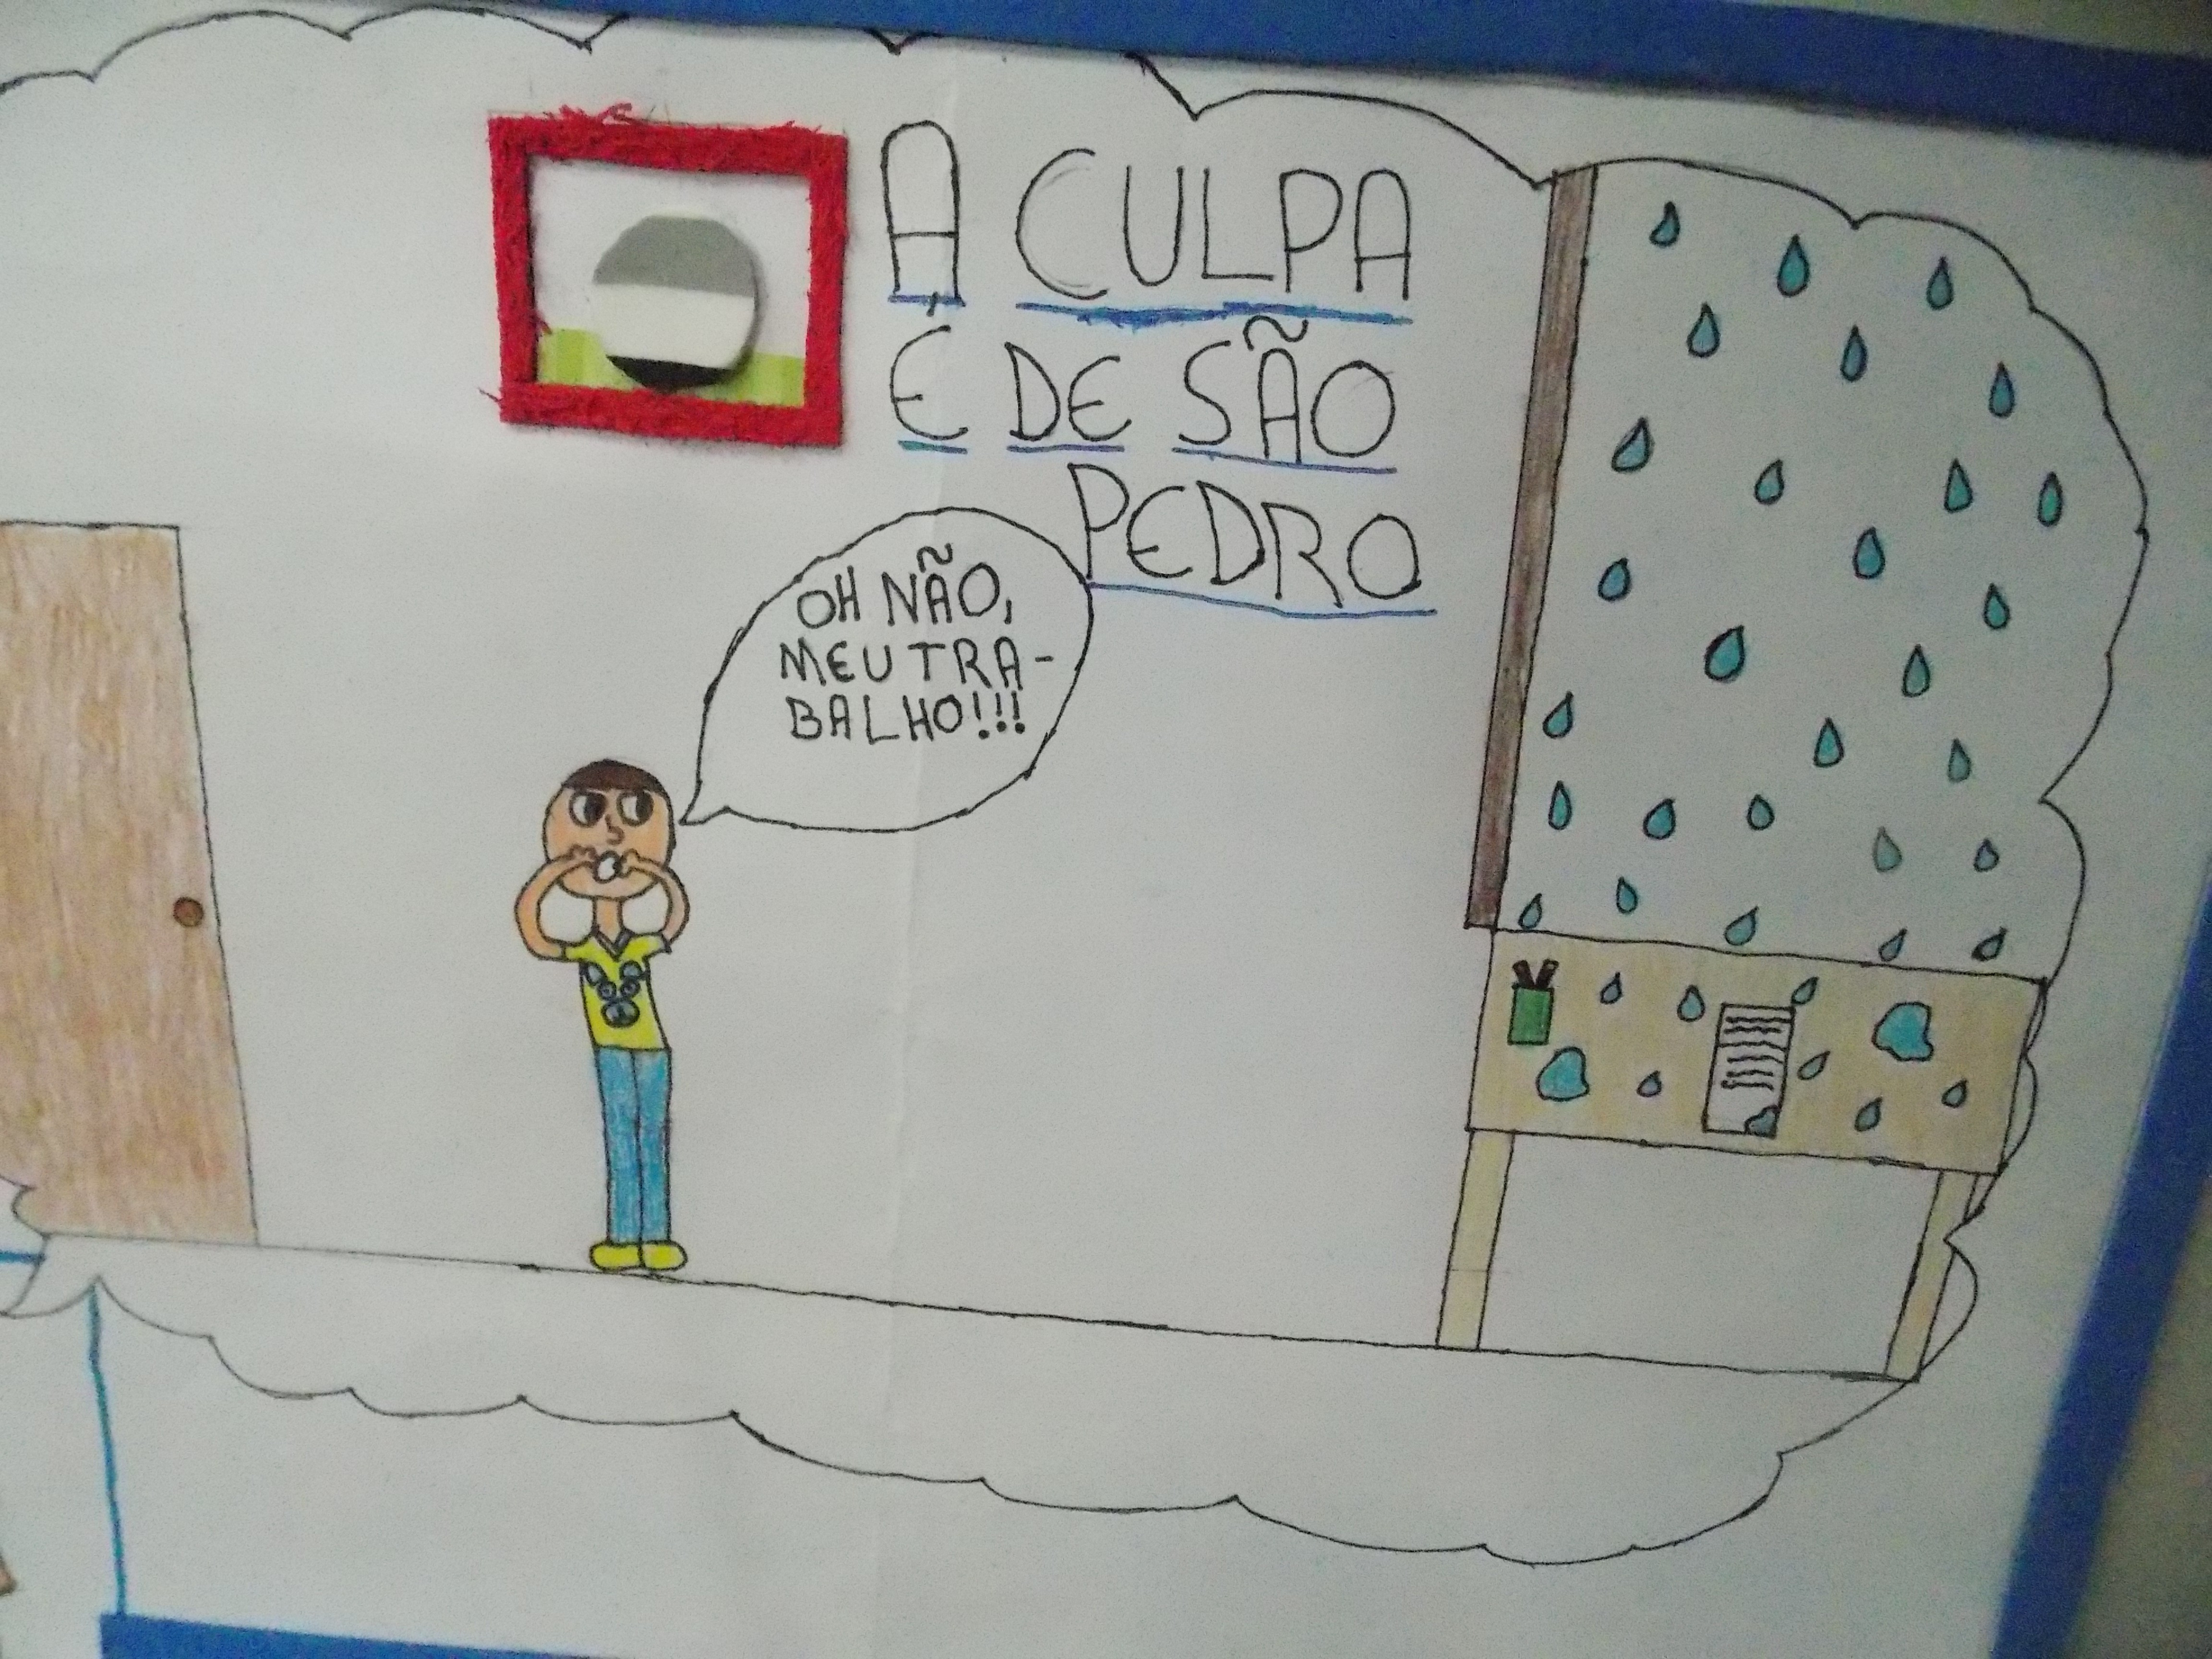 A CULPA
É DE SÃO
PEDRO
OH NÃO,
MEU TRA-
BALHO!!!